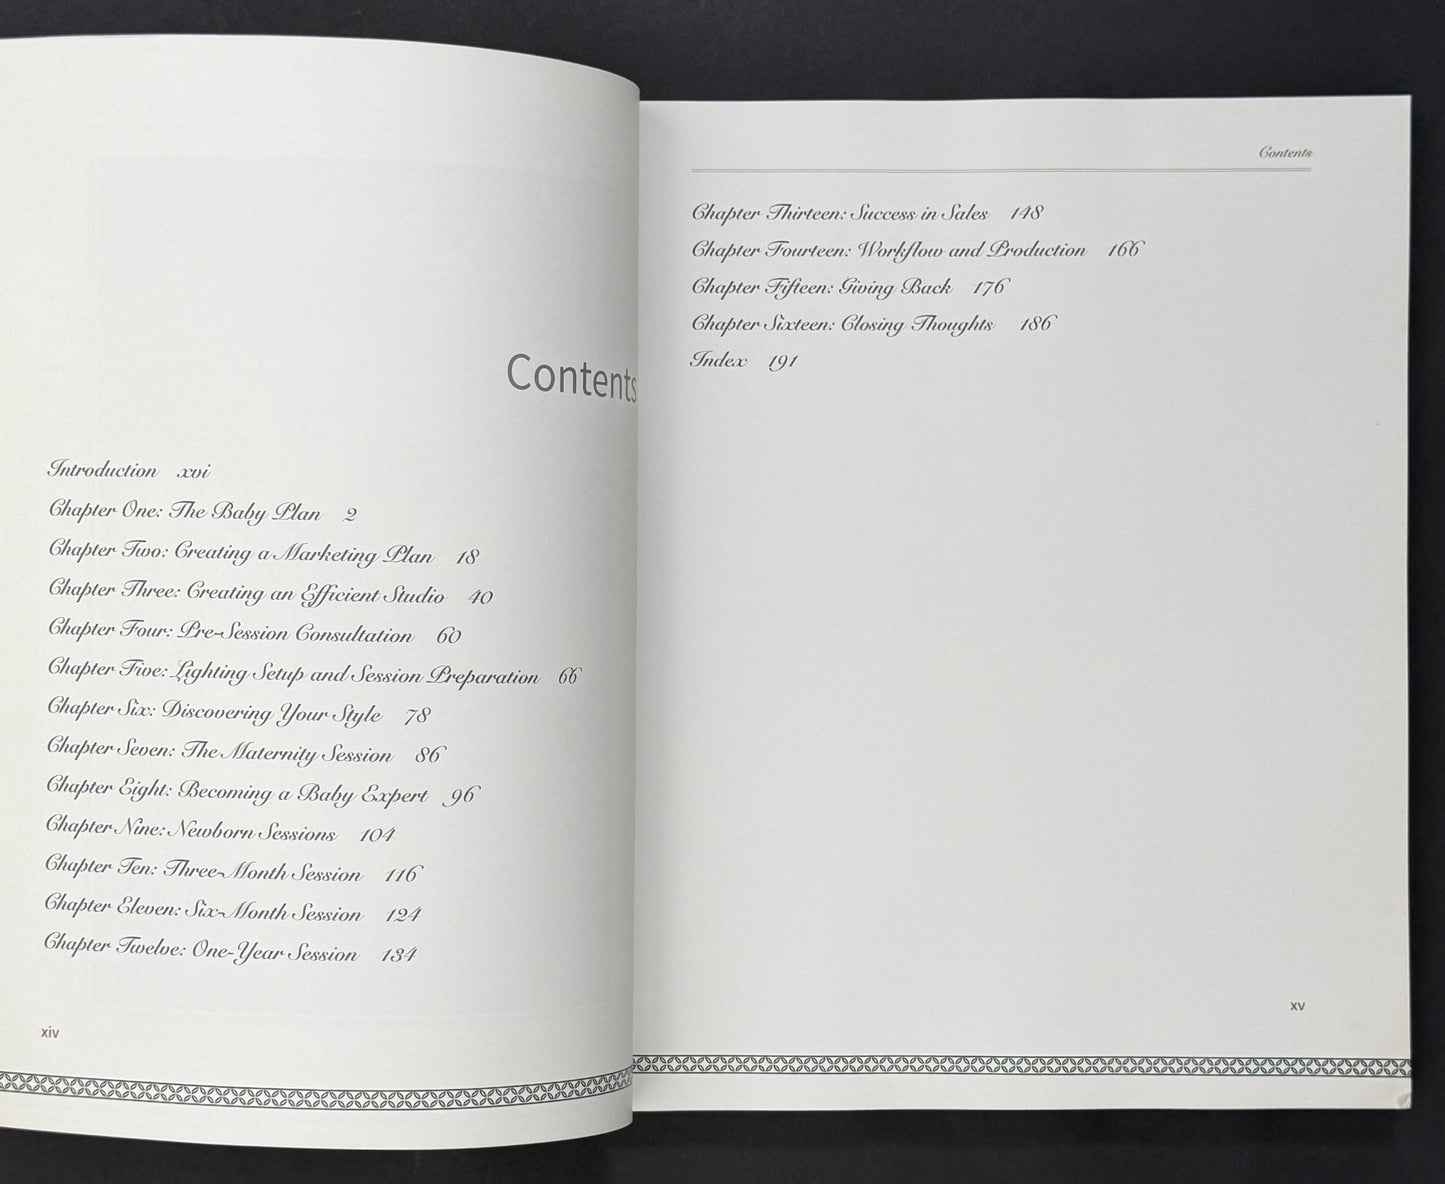 Contents
Introduction xvi
Chapter One: The Baby Plan 2
Chapter Two: Creating a Marketing Plan 18
Chapter Three: Creating an Efficient Studio 40
Chapter Four: Pre-Session Consultation 60
Chapter Five: Lighting Setup and Session Preparation 66
Chapter Six: Discovering Your Style 78
Chapter Seven: The Maternity Session 86
Chapter Eight: Becoming a Baby Expert 96
Chapter Nine: Newborn Sessions 104
Chapter Ten: Three-Month Session 116
Chapter Eleven: Six-Month Session 124
Chapter Twelve: One-Year Session 134
xiv
Contents
Chapter Thirteen: Success in Sales 148
Chapter Fourteen: Workflow and Production 166
Chapter Fifteen: Giving Back 176
Chapter Sixteen: Closing Thoughts 186
Index 191
xv